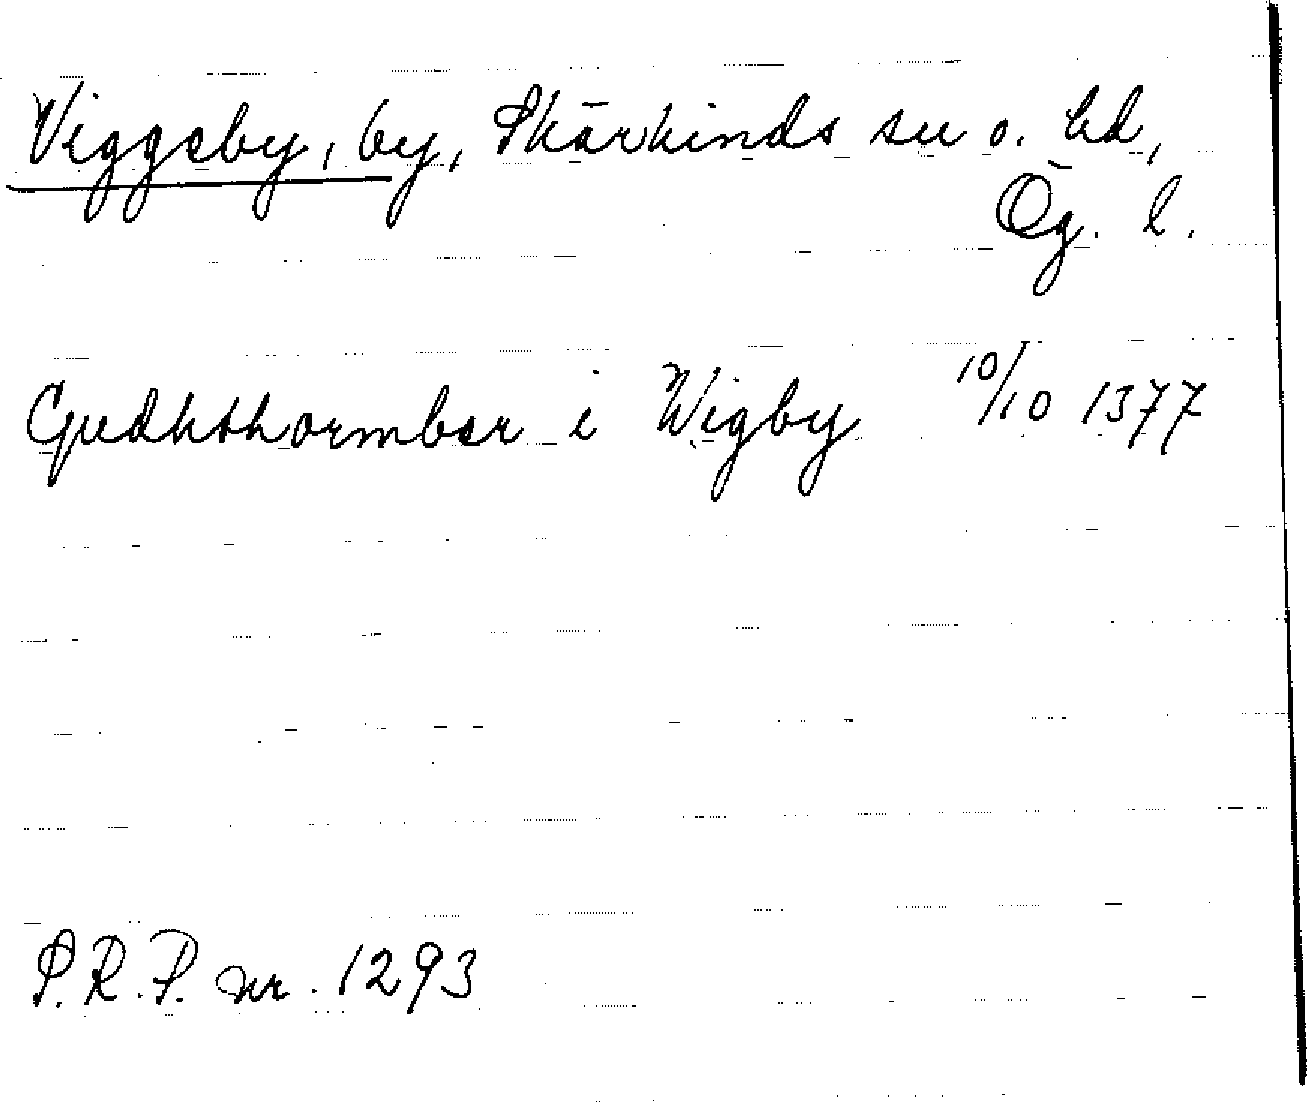 Viggeby, by, Skärkinds sn o. hd,
Ög. l.
Gudhthormber i Wigby 10/10 1377
S.R.P. nr. 1293